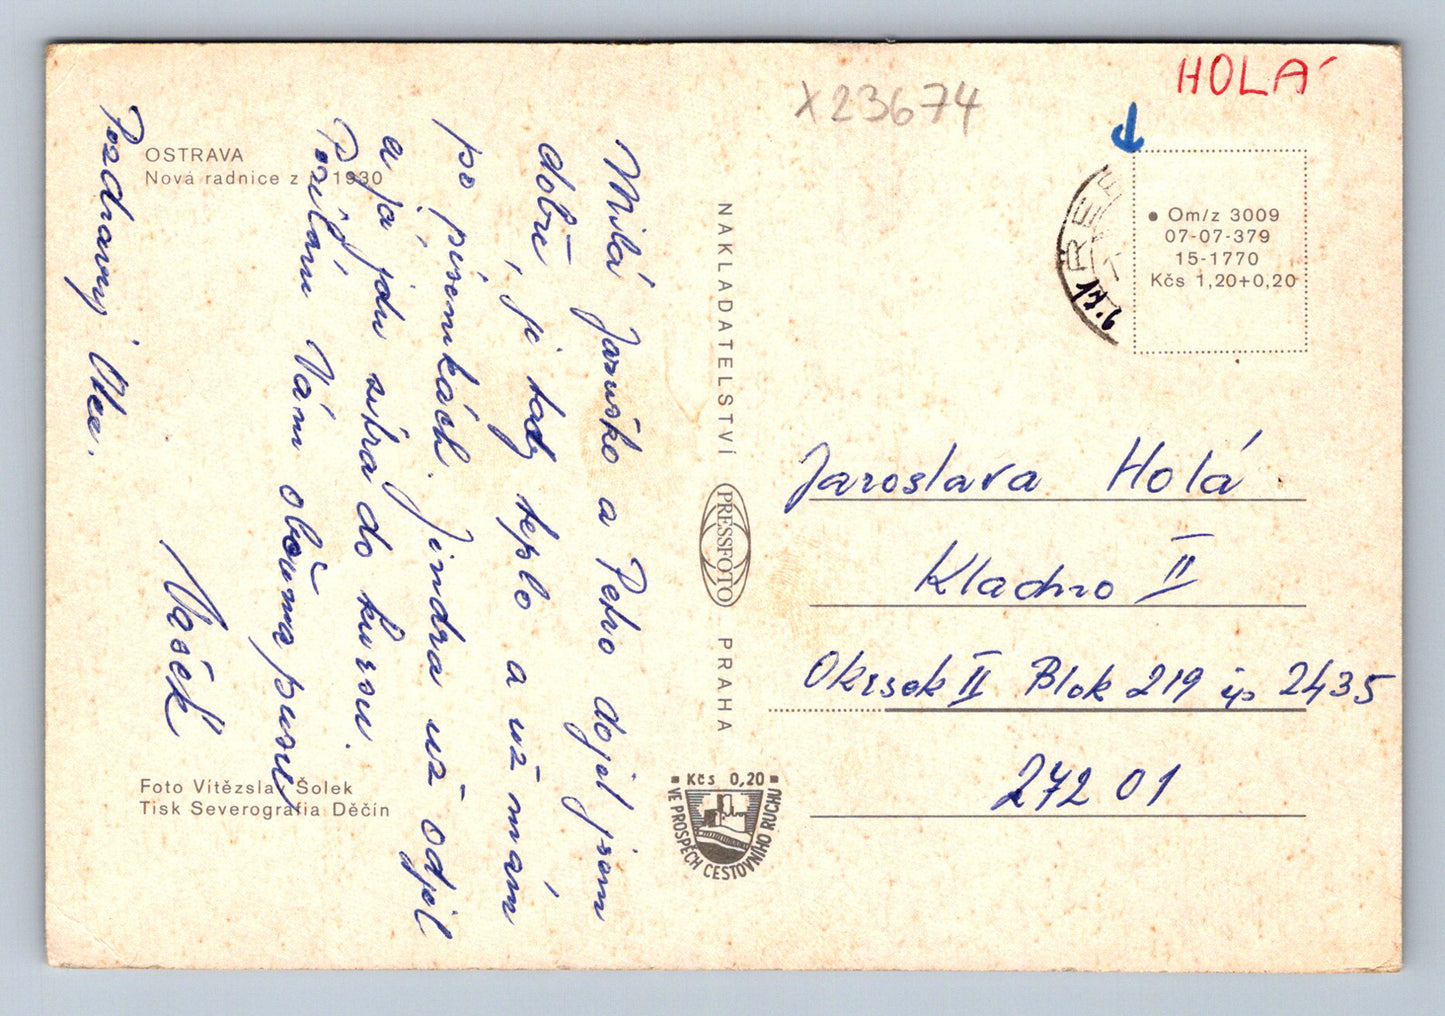 HOLÁ
X23674
OSTRAVA
Nová radnice z r. 1930
Milá Jaruško a Petro dojel jsem
dobře, je tady teplo a už mám
po písemkách. Jindra už odjel
a já jdu zítra do kursu.
Posílám Vám oběma pusu
Vašek
Pozdravuj Otce.
Foto Vítězslav Šolek
Tisk Severografia Děčín
NAKLADATELSTVÍ
PRESSFOTO
PRAHA
Kčs 0,20
VE PROSPĚCH CESTOVNÍHO RUCHU
Om/z 3009
07-07-379
15-1770
Kčs 1,20+0,20
Jaroslava Holá
Kladno II
Okrsek II Blok 219 čp 2435
272 01